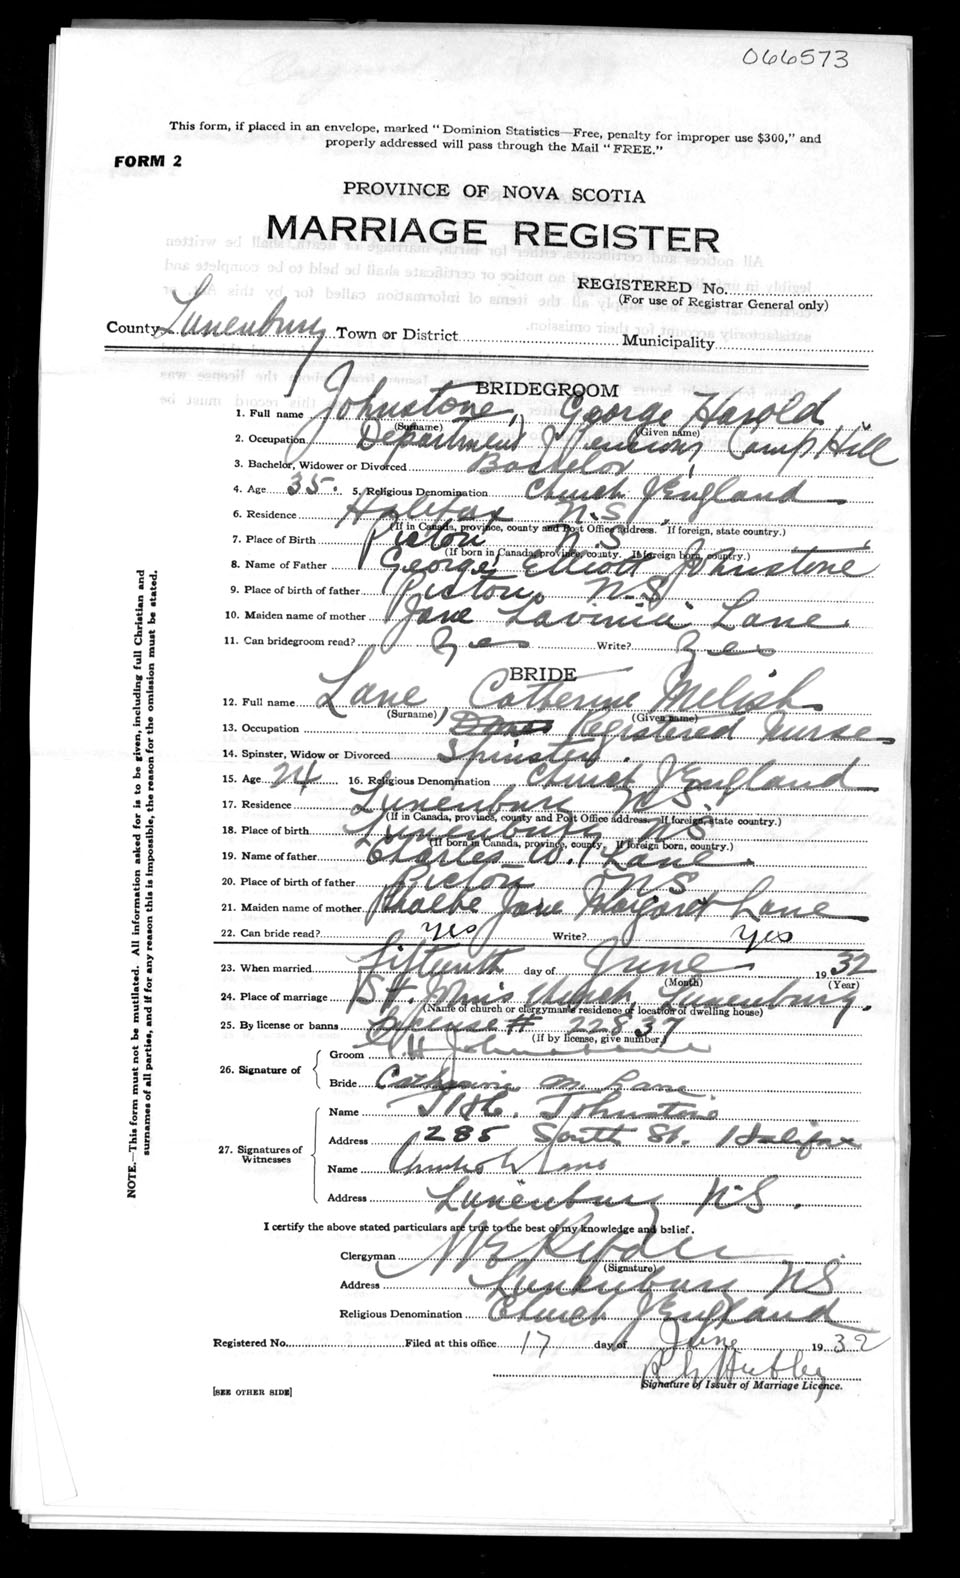 066573
This form, if placed in an envelope, marked "Dominion Statistics—Free, penalty for improper use $300," and
properly addressed will pass through the Mail "FREE."
FORM 2
PROVINCE OF NOVA SCOTIA
MARRIAGE REGISTER
REGISTERED No.
(For use of Registrar General only)
County Lunenburg Town or District Municipality
BRIDEGROOM
1. Full name Johnstone, George Harold
(Surname) (Given name)
2. Occupation Department Pensions Camp Hill
3. Bachelor, Widower or Divorced Bachelor
4. Age 35. 5. Religious Denomination Church of England
6. Residence Halifax N.S.
(If in Canada, province, county and Post Office address. If foreign, state country.)
7. Place of Birth Pictou N.S
(If born in Canada, province, county. If foreign born, country.)
8. Name of Father George Elliott Johnstone
9. Place of birth of father Pictou N.S
10. Maiden name of mother Jane Lavinia Lane
11. Can bridegroom read? Yes Write? Yes
BRIDE
12. Full name Lane, Catherine Melish
(Surname) (Given name)
13. Occupation Registered Nurse
14. Spinster, Widow or Divorced Spinster.
15. Age 24 16. Religious Denomination Church of England
17. Residence Lunenburg N.S.
(If in Canada, province, county and Post Office address. If foreign, state country.)
18. Place of birth Lunenburg N.S
(If born in Canada, province, county. If foreign born, country.)
19. Name of father Charles W. Lane.
20. Place of birth of father Pictou N.S
21. Maiden name of mother Phoebe Jane Margaret Lane
22. Can bride read? Yes Write? Yes
23. When married Fifteenth day of June 1932
(Month) (Year)
24. Place of marriage St. John's Church, Lunenburg.
(Name of church or clergyman's residence or location of dwelling house)
25. By license or banns License # 22837
(If by license, give number.)
26. Signature of
Groom G H Johnstone
Bride Catherine M. Lane
27. Signatures of
Witnesses
Name Johnstone
Address 285 South St. Halifax
Name Charles W Lane
Address Lunenburg N.S.
I certify the above stated particulars are true to the best of my knowledge and belief.
Clergyman W E Ryder
(Signature)
Address Lunenburg NS
Religious Denomination Church of England
Registered No. Filed at this office 17 day of June 1932
Hubley
Signature of Issuer of Marriage Licence.
[SEE OTHER SIDE]
NOTE.—This form must not be mutilated. All information asked for is to be given, including full Christian and
surnames of all parties, and if for any reason this is impossible, the reason for the omission must be stated.